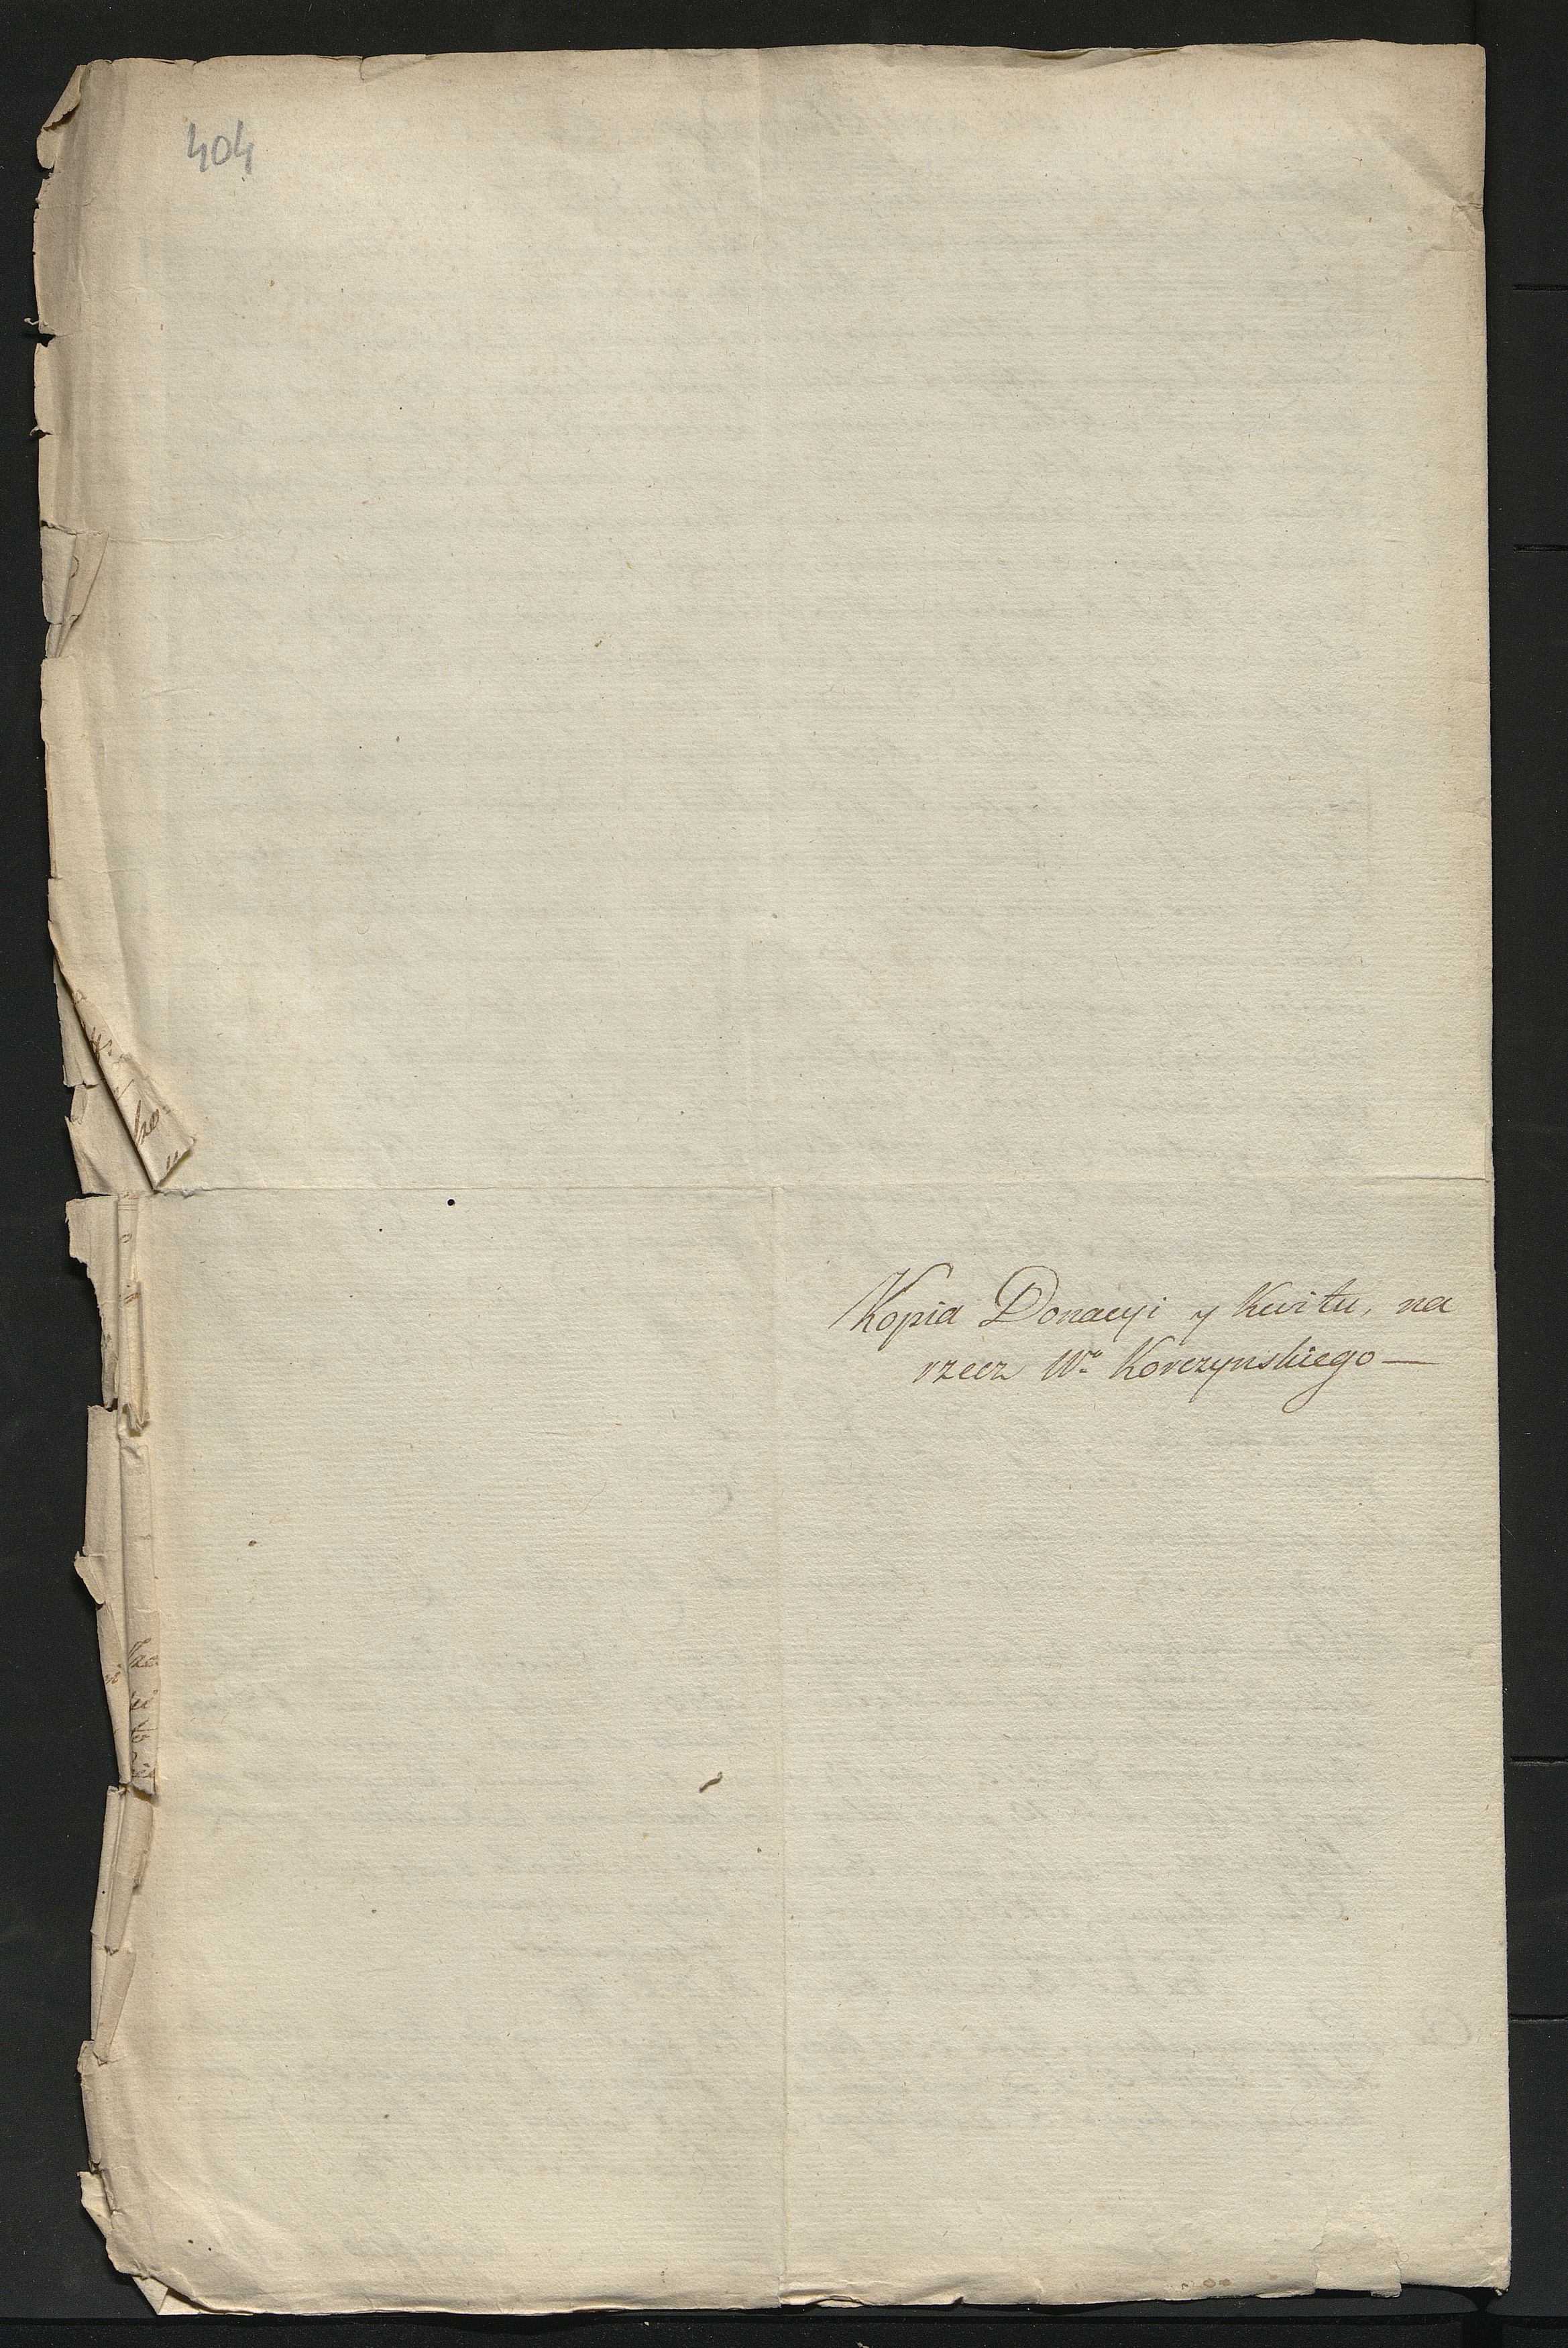 404
Kopia Donacyi y Kwitu, na
rzecz Wo Korczynskiego —